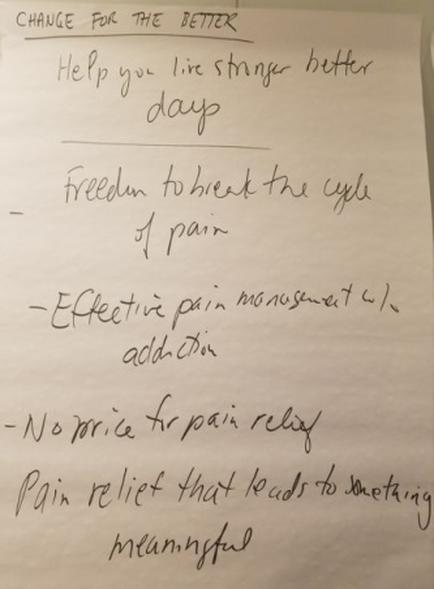 CHANGE FOR THE BETTER
Help you live stronger better
days
Freedom to break the cycle
of pain
- Effective pain management w/o
addiction
- No price for pain relief
Pain relief that leads to something
meaningful